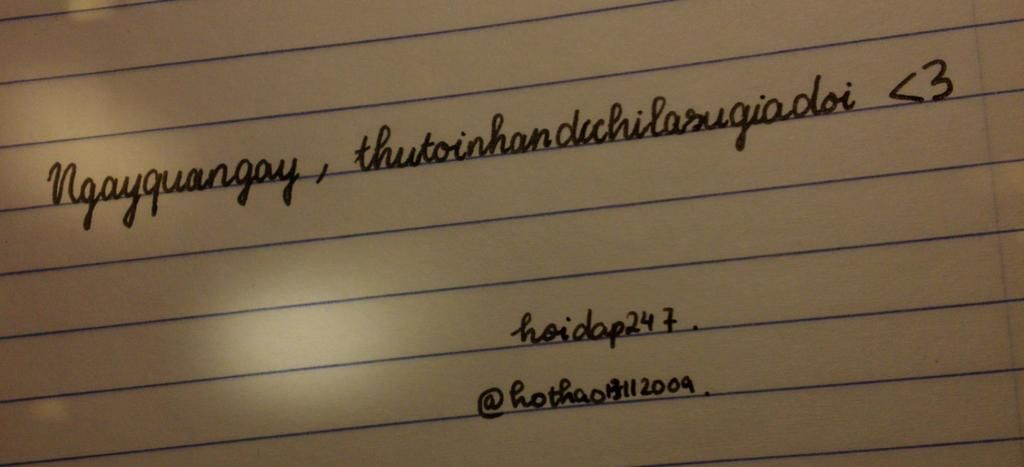 Ngayquangay, thutoinhandcchilasugiadoi <3
hoidap247.
@hothao17112009.